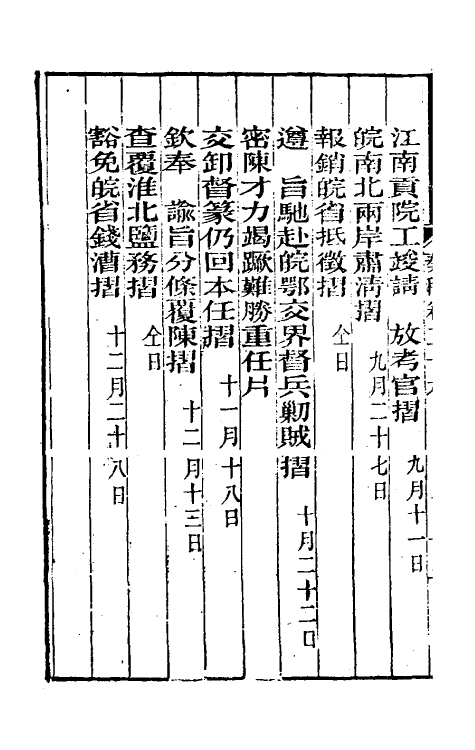 江南貢院工竣請　放考官摺　九月十一日
皖南北兩岸肅清摺　九月二十七日
報銷皖省抵徵摺　仝日
遵　旨馳赴皖鄂交界督兵勦賊摺　十月二十二日
密陳才力竭蹶難勝重任片
交卸督篆仍回本任摺　十一月十八日
欽奉　諭旨分條覆陳摺　十二月十三日
查覆淮北鹽務摺　仝日
豁免皖省錢漕摺　十二月二十八日